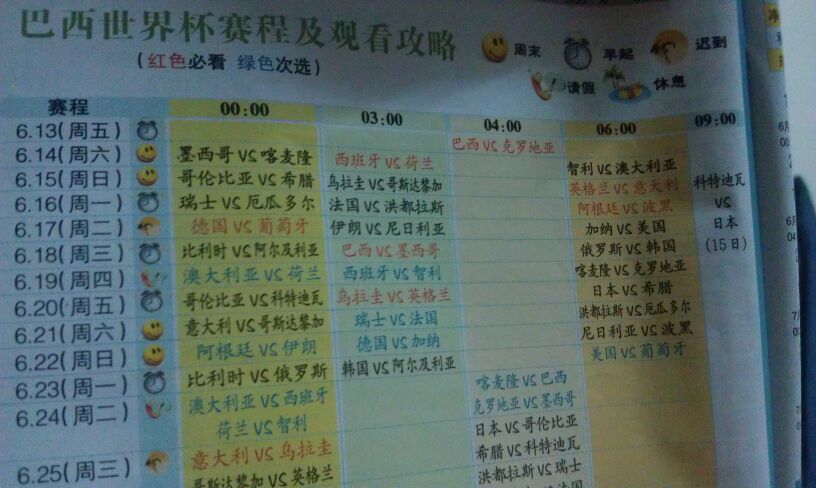 巴西世界杯赛程及观看攻略
(红色必看 绿色次选)
周末 早起 迟到
请假 休息
赛程 00:00 03:00 04:00 06:00 09:00
6.13(周五) 巴西VS克罗地亚
6.14(周六) 墨西哥VS喀麦隆 西班牙VS荷兰 智利VS澳大利亚
6.15(周日) 哥伦比亚VS希腊 乌拉圭VS哥斯达黎加 英格兰VS意大利 科特迪瓦
VS
日本
(15日)
6.16(周一) 瑞士VS厄瓜多尔 法国VS洪都拉斯 阿根廷VS波黑
6.17(周二) 德国VS葡萄牙 伊朗VS尼日利亚 加纳VS美国
6.18(周三) 比利时VS阿尔及利亚 巴西VS墨西哥 俄罗斯VS韩国
6.19(周四) 澳大利亚VS荷兰 西班牙VS智利 喀麦隆VS克罗地亚
6.20(周五) 哥伦比亚VS科特迪瓦 乌拉圭VS英格兰 日本VS希腊
6.21(周六) 意大利VS哥斯达黎加 瑞士VS法国 洪都拉斯VS厄瓜多尔
6.22(周日) 阿根廷VS伊朗 德国VS加纳 尼日利亚VS波黑
6.23(周一) 比利时VS俄罗斯 韩国VS阿尔及利亚 美国VS葡萄牙
6.24(周二) 澳大利亚VS西班牙 喀麦隆VS巴西
荷兰VS智利 克罗地亚VS墨西哥
6.25(周三) 意大利VS乌拉圭 日本VS哥伦比亚
哥斯达黎加VS英格兰 希腊VS科特迪瓦
洪都拉斯VS瑞士